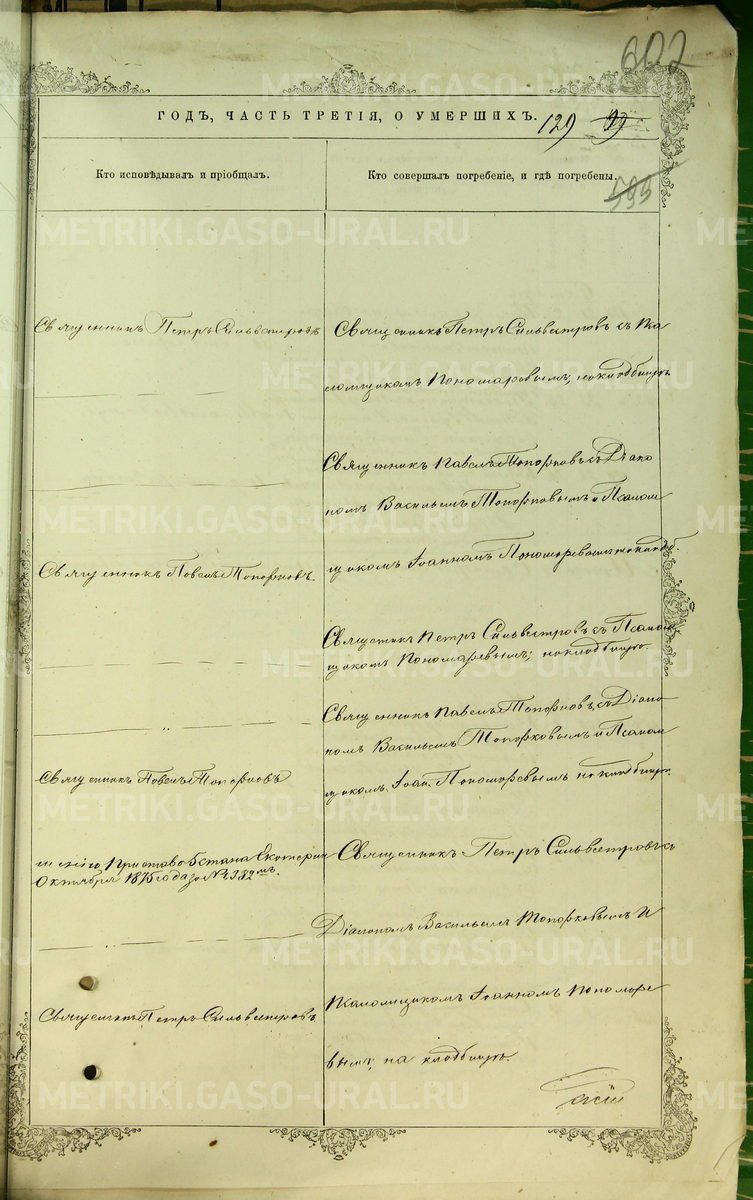 602
ГОДЪ, ЧАСТЬ ТРЕТІЯ, О УМЕРШИХЪ.
129
99
595
Кто исповѣдывалъ и пріобщалъ.
Кто совершалъ погребеніе, и гдѣ погребены.
Священникъ Петръ Сильвестровъ
Священникъ Петръ Сильвестровъ съ Пса
ломщикомъ Пономаровымъ, на кладбищѣ.
Священникъ Павелъ Топорковъ съ Діако
номъ Васильемъ Топорковымъ и Псалом
щикомъ Іоанномъ Пономоревымъ на кладб.
Священникъ Павелъ Топорковъ.
Священникъ Петръ Сильвестровъ съ Псалом
щикомъ Пономаревымъ; на кладбищѣ.
Священникъ Павелъ Топорковъ, съ Діако
номъ Васильемъ Топорковымъ и Псалом
щикомъ Іоан. Пономоревымъ на кладбищѣ.
Священникъ Павелъ Топорковъ
Пристава 5 стана Екатерин
Октября 1875 года за № 1382мъ.
Священникъ Петръ Сильвестровъ съ
Діакономъ Васильемъ Топорковымъ и
Псаломщикомъ Іоанномъ Пономоре
вымъ, на кладбищѣ.
Священникъ Петръ Сильвестровъ.
METRIKI.GASO-URAL.RU